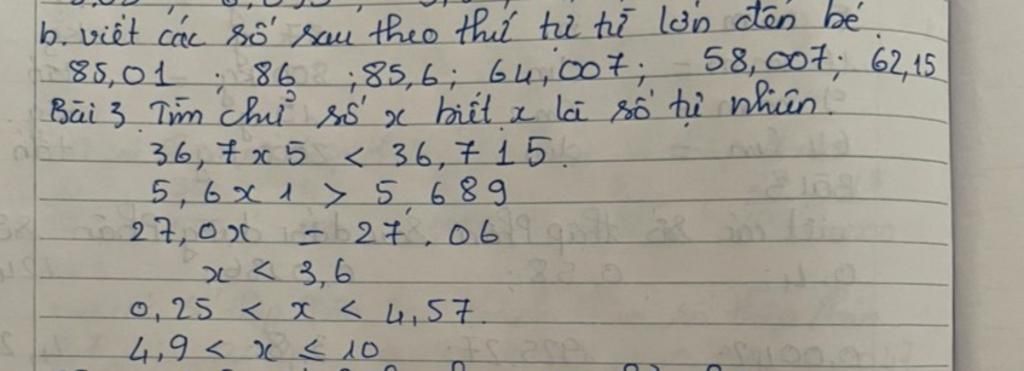 b. viết các số sau theo thứ tự từ lớn đến bé.
85,01 ; 86 ; 85,6 ; 64,007 ; 58,007 ; 62,15
Bài 3. Tìm chữ số x biết x là số tự nhiên.
36,7x5 < 36,715.
5,6x1 > 5,689
27,0x = 27.06
x < 3,6
0,25 < x < 4,57.
4,9 < x ≤ 10